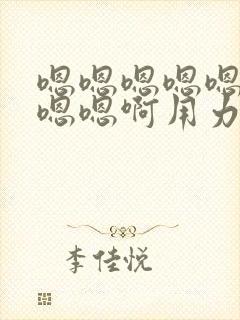 嗯嗯嗯嗯嗯
嗯嗯啊用力
李佳悦